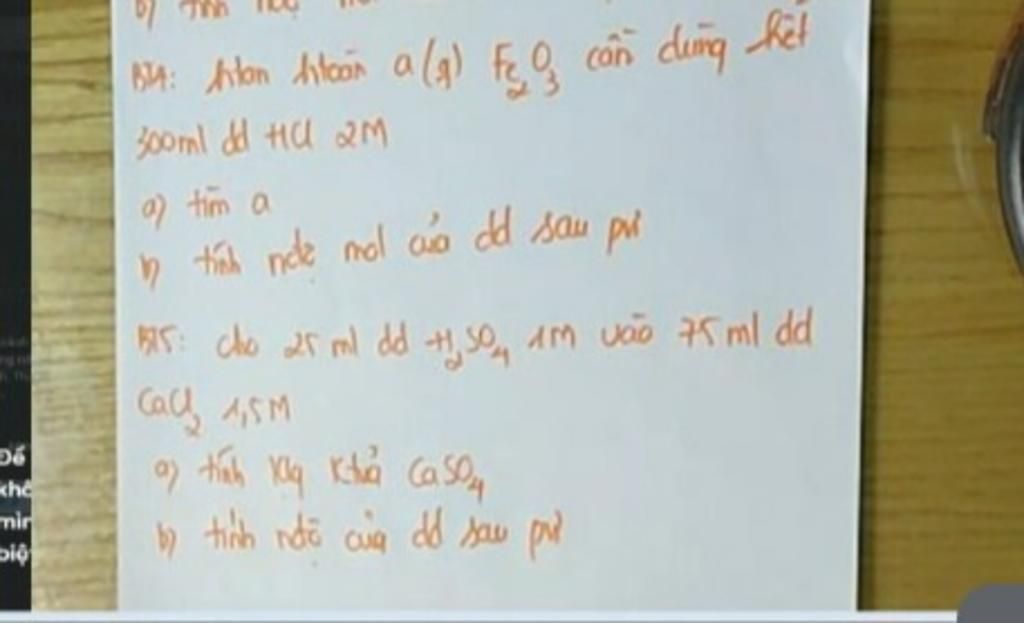 b) tính
BT4: htan htoàn a(g) Fe2O3 cần dùng hết
300ml dd HCl 2M
a) tìm a
b) tính nđộ mol của dd sau pứ
BT5: cho 25 ml dd H2SO4 1M vào 75 ml dd
CaCl2 1,5M
a) tính klg CaSO4
b) tính nđộ của dd sau pứ
Để
khô
mìn
biệ